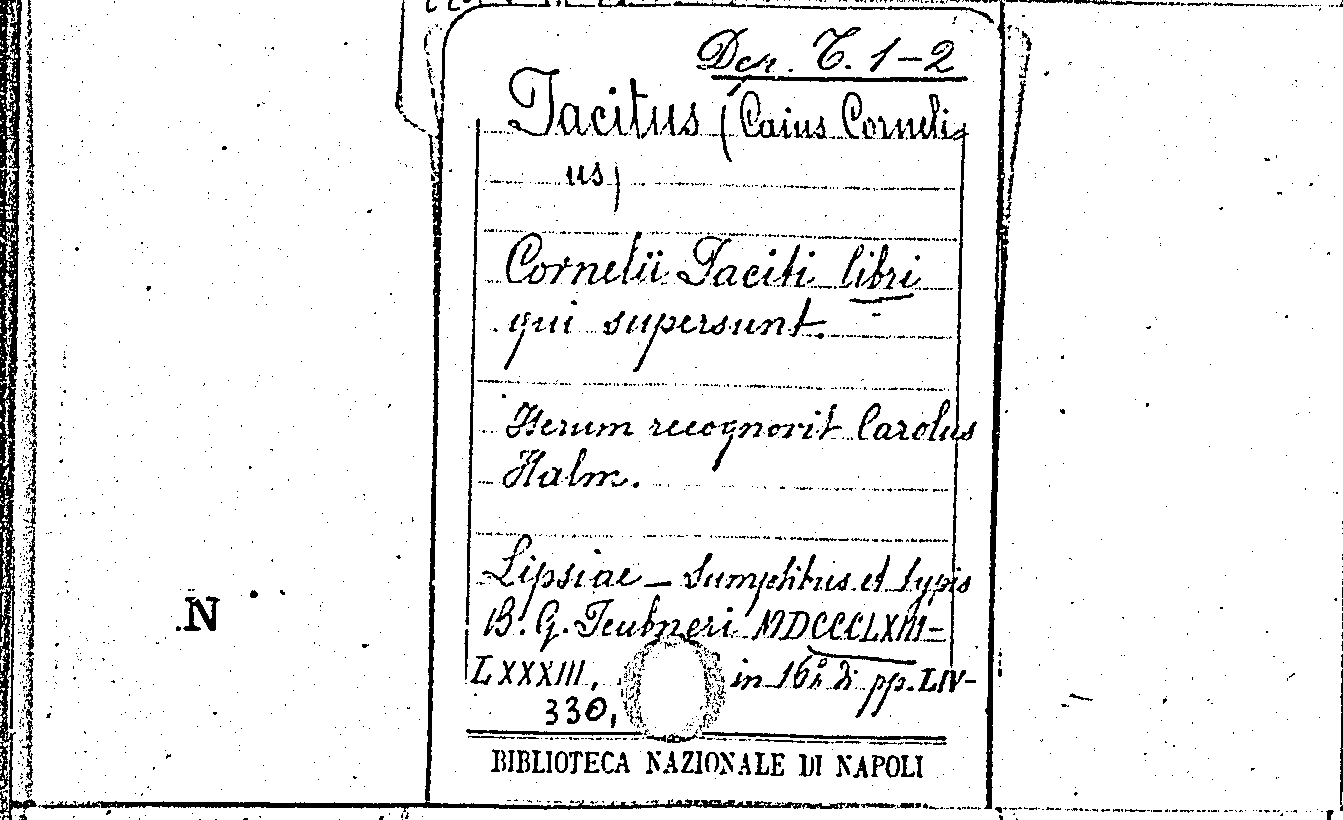 Der. T. 1-2
Tacitus (Caius Corneli-
us)
Cornelii Taciti libri
qui supersunt.
Iterum recognovit Carolus
Halm.
Lipsiae – Sumptibus et typis
B. G. Teubneri MDCCCLXIII-
LXXXIII, in 16º di pp. LIV-
330,
N
BIBLIOTECA NAZIONALE DI NAPOLI